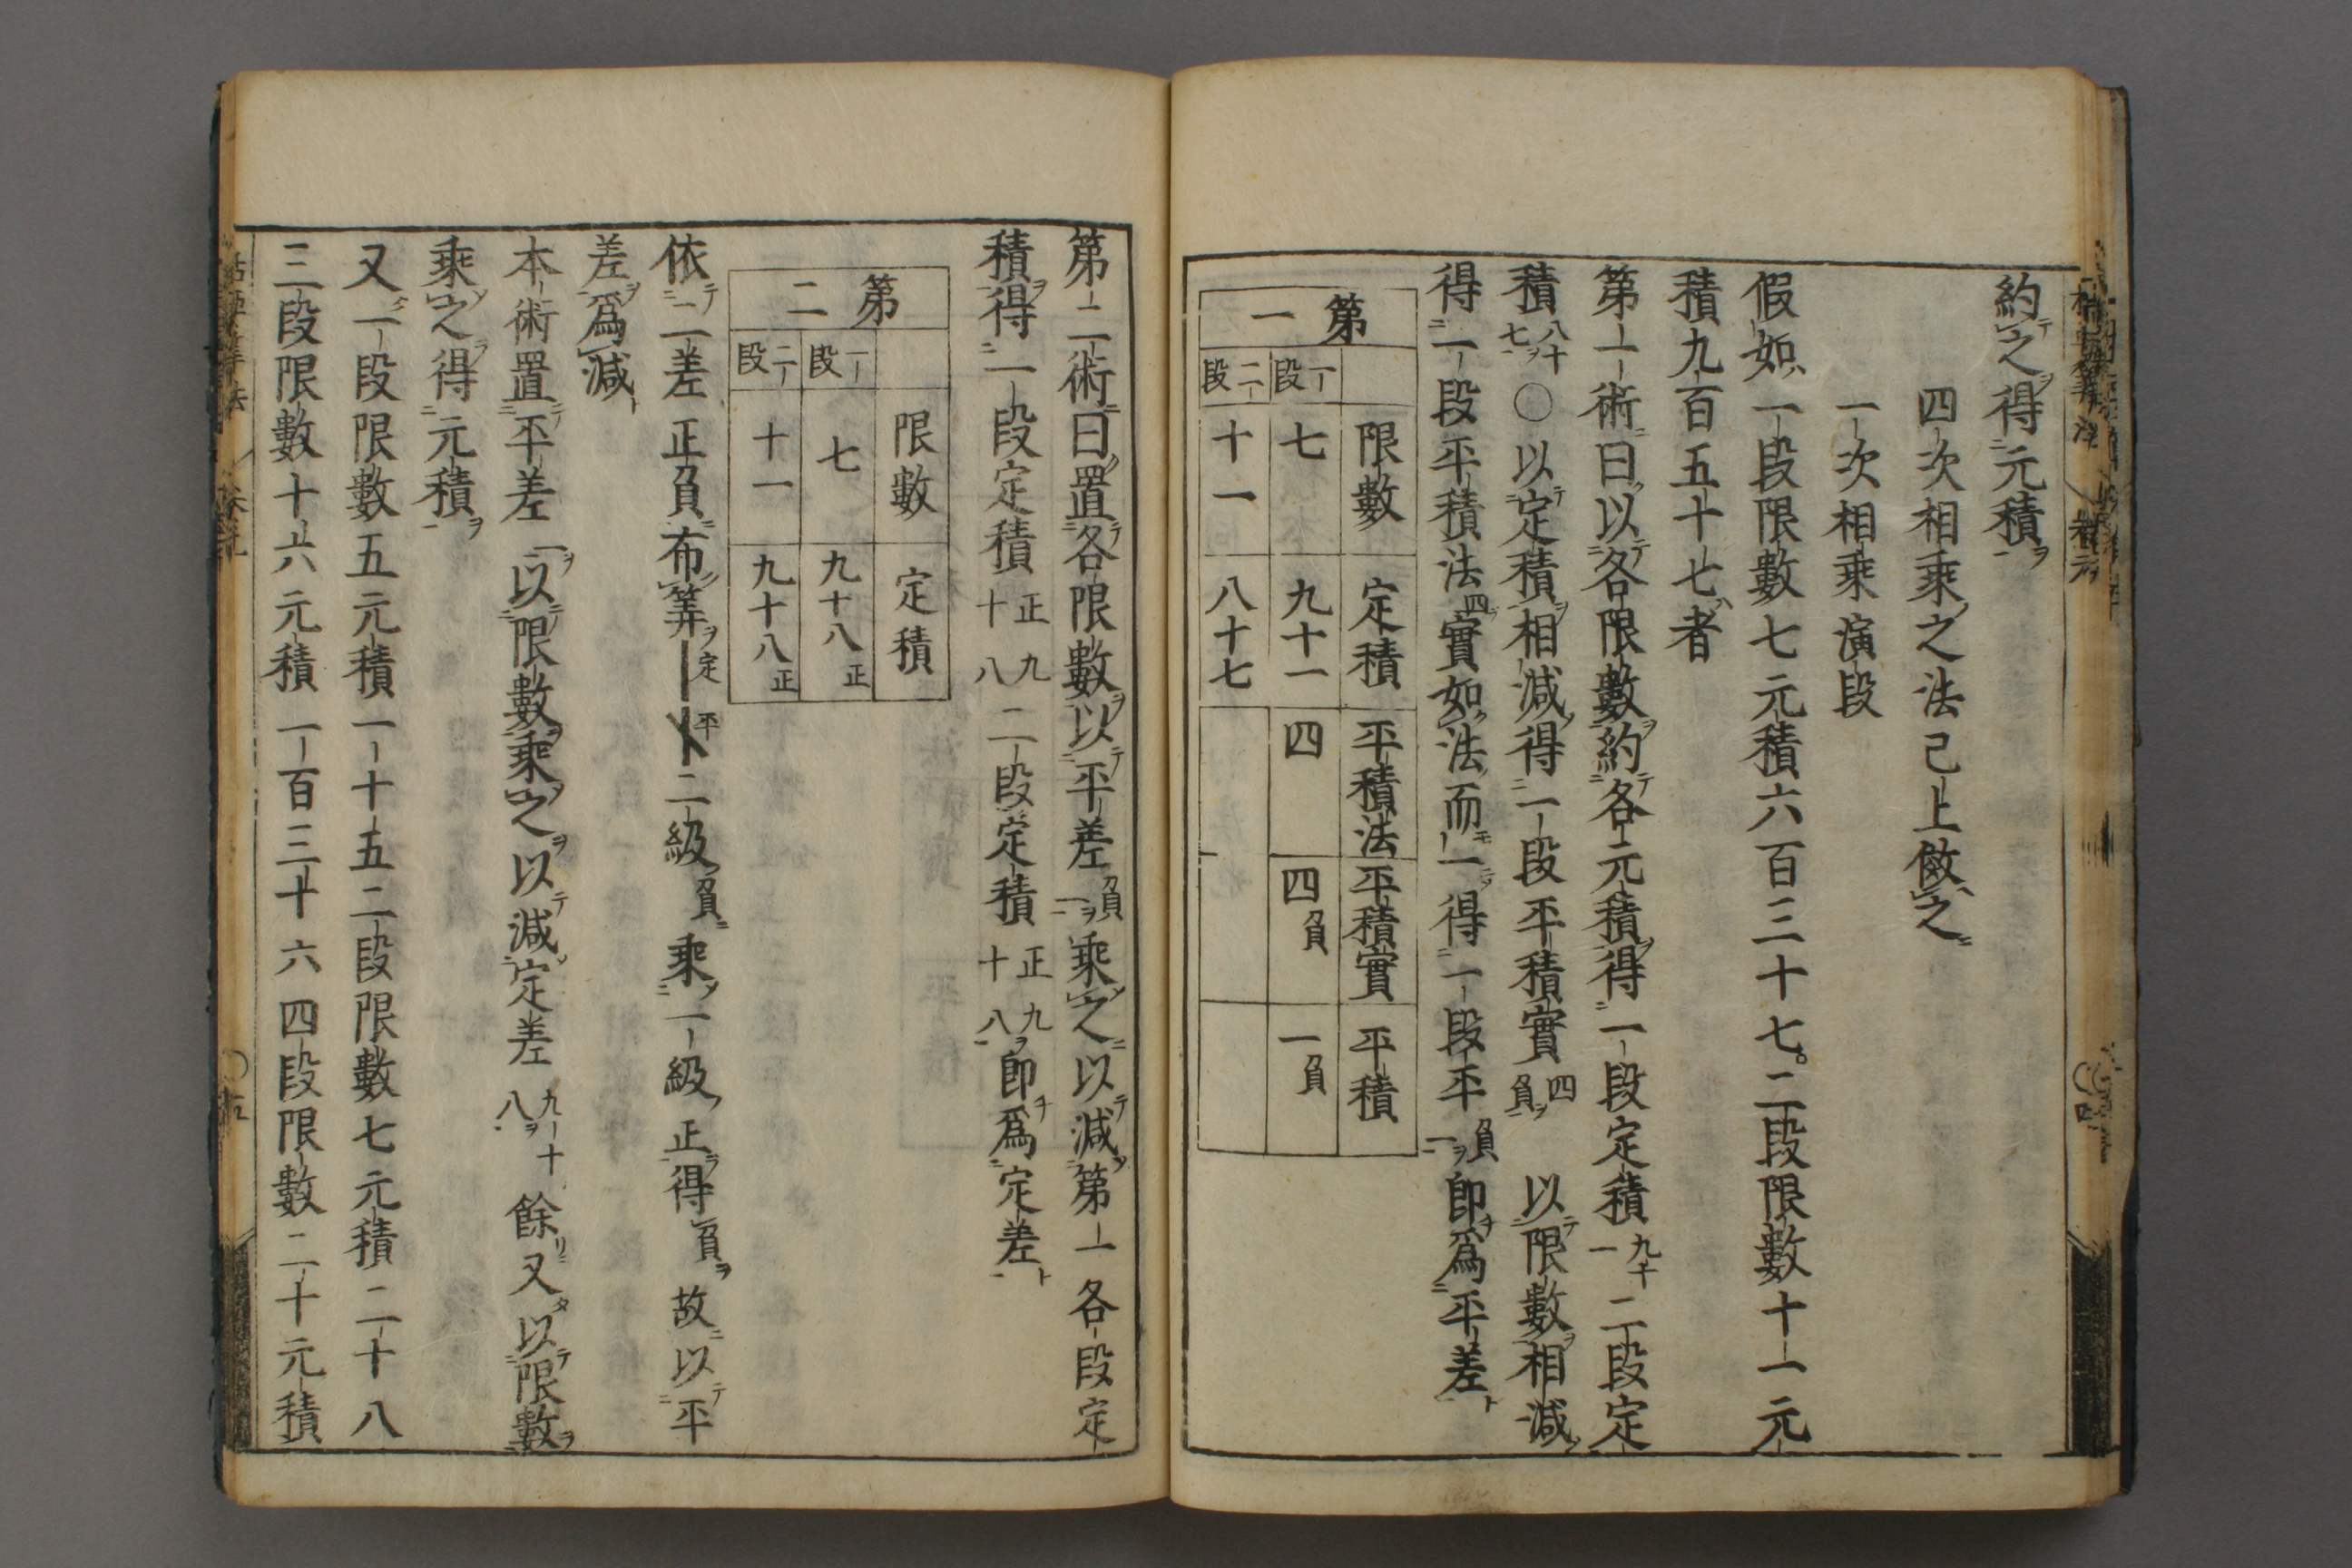 約之得元積
四次相乘之法已上倣之
一次相乘演段
假如一段限數七元積六百三十七。二段限數十一元
積九百五十七者
第一術曰以各限數約各元積得一段定積九十一二段定
積八十七○以定積相減得一段平積實四負以限數相減
得一段平積法四實如法而一得一段平負一即爲平差
第一
限數 定積 平積法 平積實 平積
一段 七 九十一 四 四負 一負
二段 十一 八十七
第二術曰置各限數以平差負一乘之以減第一各段定
積得一段定積正九十八二段定積正九十八即爲定差
第二
限數 定積
一段 七 九十八正
二段 十一 九十八正
依二差正負布筭定平二級負乘一級正得負故以平
差爲減
本術置平差一以限數乘之以減定差九十八餘又以限數
乘之得元積
又一段限數五元積一十五二段限數七元積二十八
三段限數十六元積一百三十六四段限數二十元積